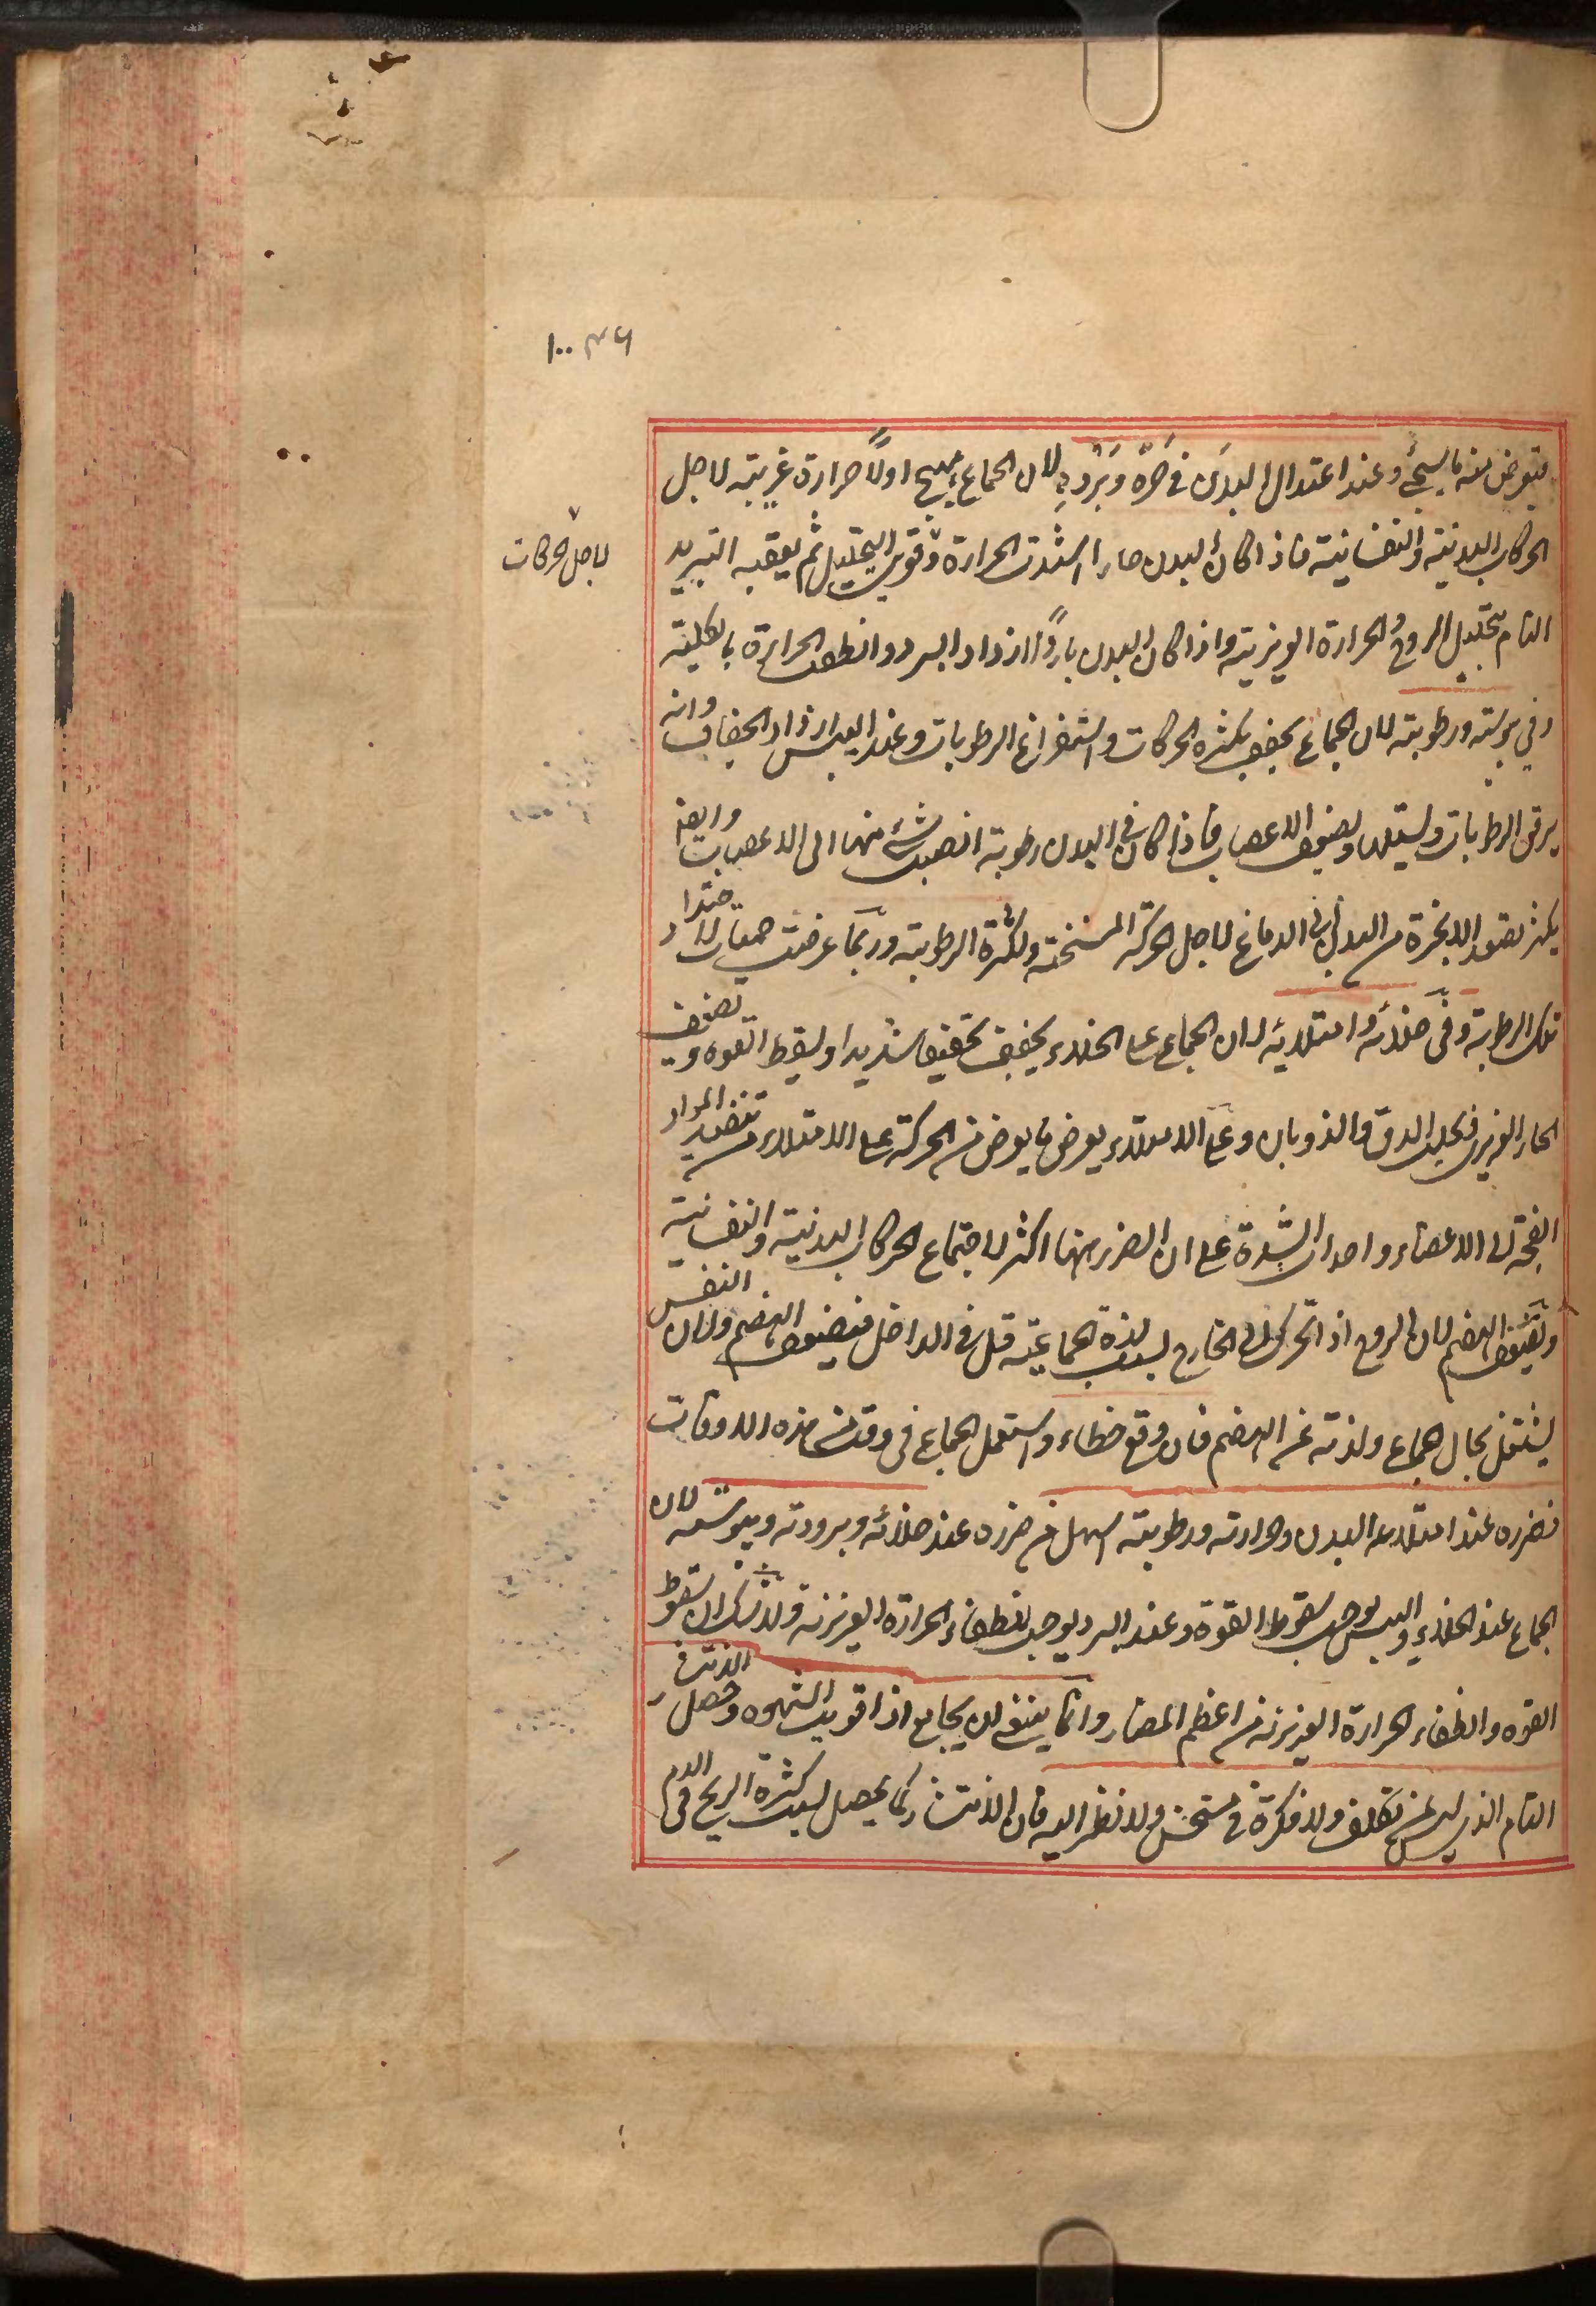 ١٠٠ ٣٦
فتعرض منه ما يسيجئ وعند اعتدال البدن في حَرّه وبَرْدِهِ لان الجماع يهيج اولاً حرارة غريبة لاجل
الحركات البدنية والنفسانية فاذا كان البدن حارا اشتدت الحرارة وقويت التحليل ثم يعقبه التبريد
لاجل الحركات
التام بتحليل الروح والحرارة الغريزية واذا كان البدن باردًا ازداد البرد وانطفت الحرارة بالكلية
وفي يبوسته ورطوبته لان الجماع يجفف بكثرة الحركات واستفراغ الرطوبات وعند اليبس ازداد الجفاف وانه
يرقق الرطوبات ويسيلها ويضعف الاعصاب فاذا كان في البدن رطوبة انصبت شئ منها الى الاعصاب وايضا
يكثر تصعد الابخرة من البدن الى الدماغ لاجل الحركة المسخنة ولكثرة الرطوبة وربما عرضت حميات لاحتداد
تلك الرطوبة وفي خلائه وامتلائه لان الجماع على الخلاء يجفف تجفيفا شديدا ويسقط القوه ويضعف
الحار الغريزي فيجلب الدق والذوبان وعلى الامتلاء يعرض ما يعرض من الحركة على الامتلاء من تنفيذ المواد
الفجة الى الاعضاء واحداث الشدة على ان الضرر منها اكثر لاجتماع الحركات البدنية والنفسانية
وتضعف الهضم لان الروح اذا تحرك الى الخارج بسبب لذة الجماعية قل في الداخل فيضعف الهضم ولان النفس
يشتغل بحال الجماع ولذته عن الهضم فان وقع خطاء واستعمل الجماع في وقت من هذه الاوقات
فضرره عند امتلاء البدن وحرارته ورطوبته اسهل من ضرره عند خلائه وبرودته ويبوسته لان
الجماع عند الخلاء واليبس يوجب سقوط القوة وعند البرد يوجب انطفاء الحرارة الغريزية ولا شك ان سقوط
القوه وانطفاء الحرارة الغريزية من اعظم المضار وانما ينبغي ان يجامع اذا قويت الشهوه وحصل الانتشار
التام الذي ليس عن تكلف ولا فكرة في مستحسن ولا نظر اليه فان الانتشار كما يحصل بسبب كثرة الريح في الدم